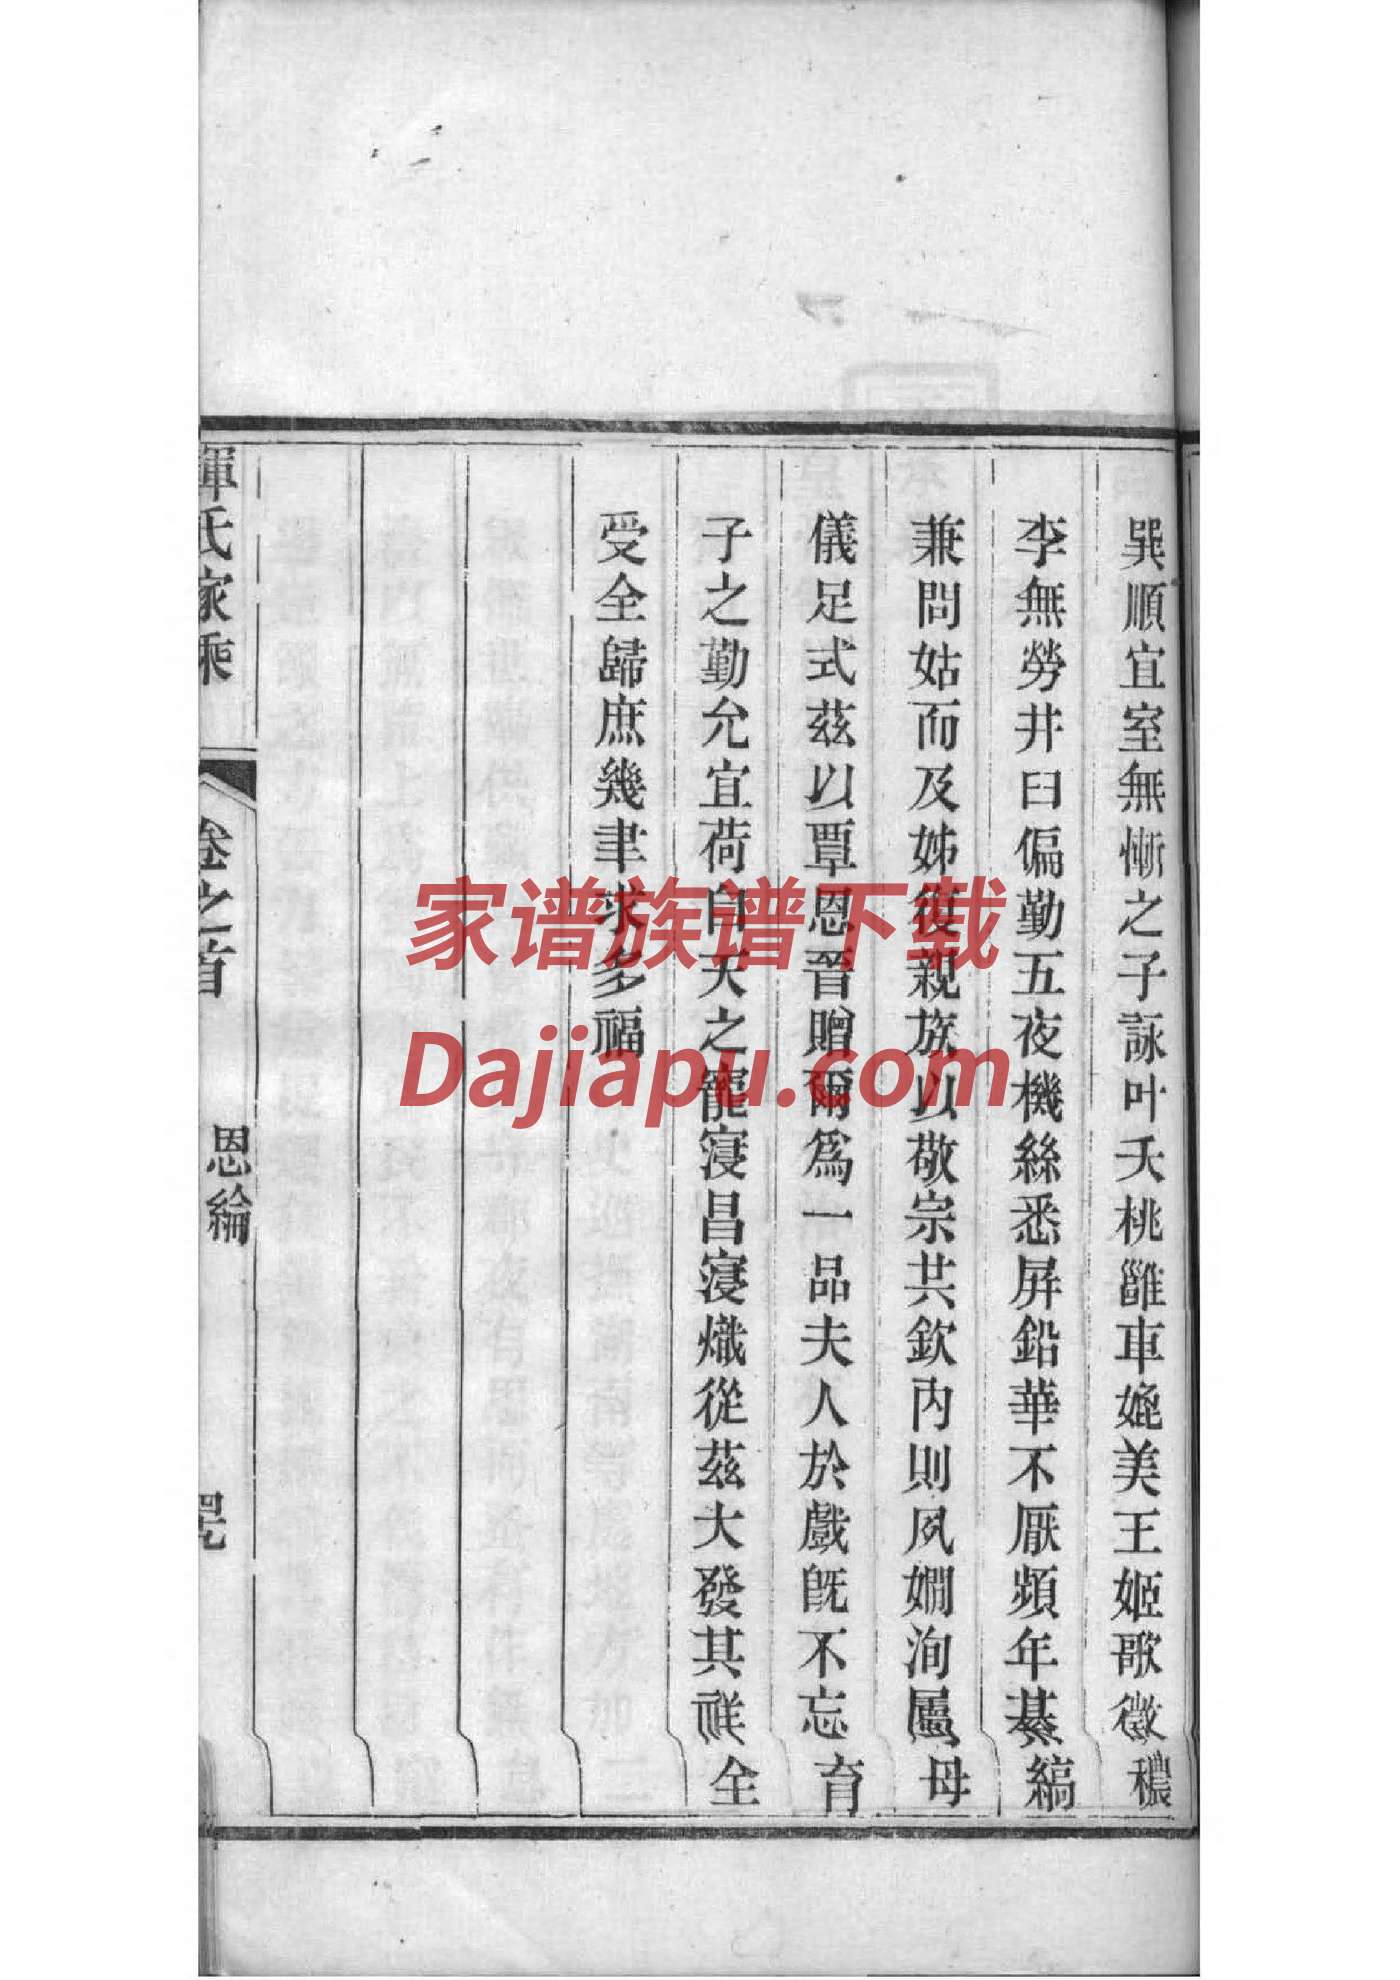 巽順宜室無慚之子詠叶夭桃雝車媲美王姬歌徽穠
李無勞井臼偏勤五夜機絲悉屏鉛華不厭頻年綦縞
兼問姑而及姊復親族以敬宗共欽內則夙嫻洵屬母
儀足式茲以覃恩晉贈爾為一品夫人於戲旣不忘育
子之勤允宜荷自天之寵寖昌寖熾從茲大發其祥全
受全歸庶幾聿求多福
惲氏家乘
卷之首
恩綸
家谱族谱下载
Dajiapu.com